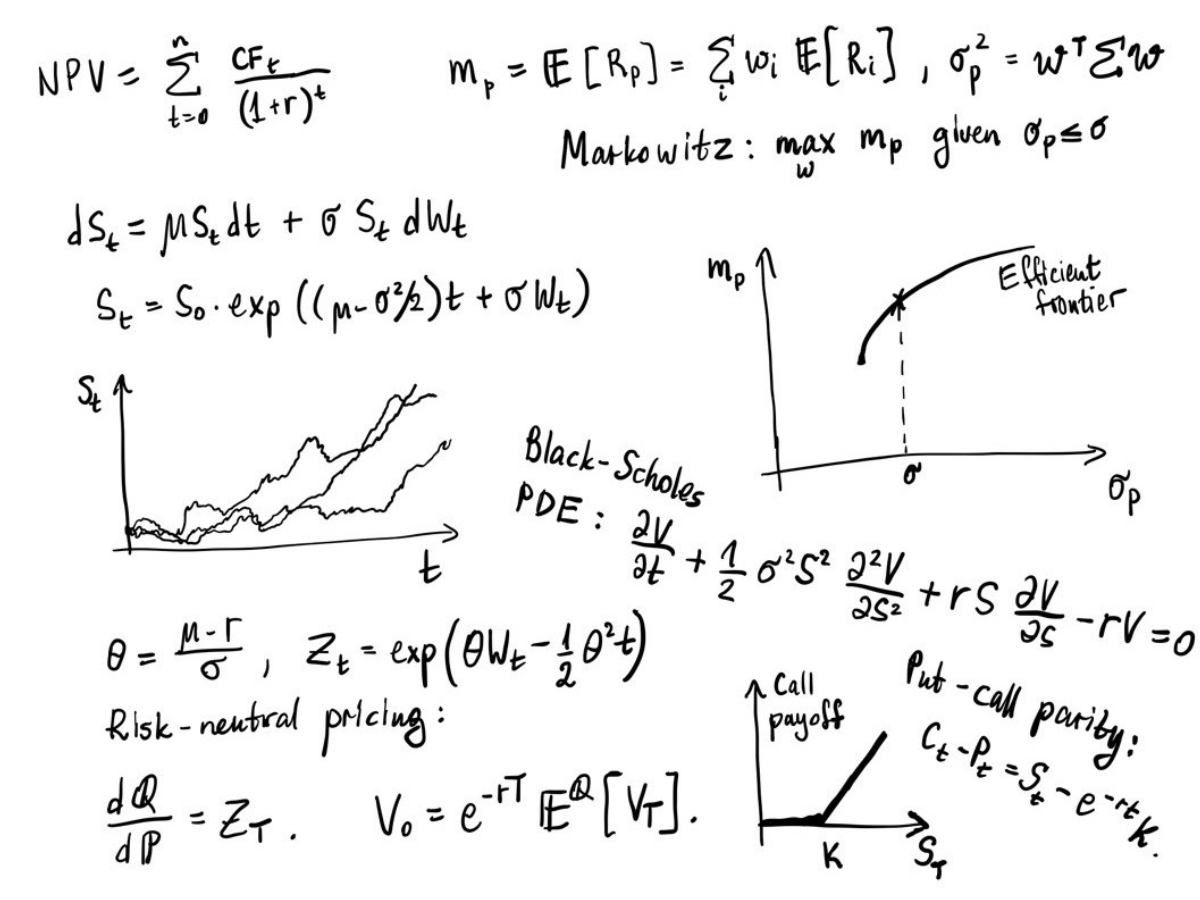 NPV = ∑_{t=0}^{n} CF_t/(1+r)^t
m_p = 𝔼[R_p] = ∑_i w_i 𝔼[R_i] , σ_p^2 = w^T Σ w
Markowitz: max_w m_p given σ_p ≤ σ
dS_t = μS_t dt + σ S_t dW_t
S_t = S_0 · exp((μ-σ²/2)t + σW_t)
m_p
Efficient
frontier
σ
σ_p
S_t
t
Black-Scholes
PDE: ∂V/∂t + 1/2 σ²S² ∂²V/∂S² + rS ∂V/∂S - rV = 0
θ = (μ-r)/σ , Z_t = exp(θW_t - 1/2 θ²t)
Risk-neutral pricing:
dℚ/dℙ = Z_T . V_0 = e^{-rT} 𝔼^ℚ[V_T].
Call
payoff
K
S_T
Put-call parity:
C_t - P_t = S_t - e^{-rt} K.